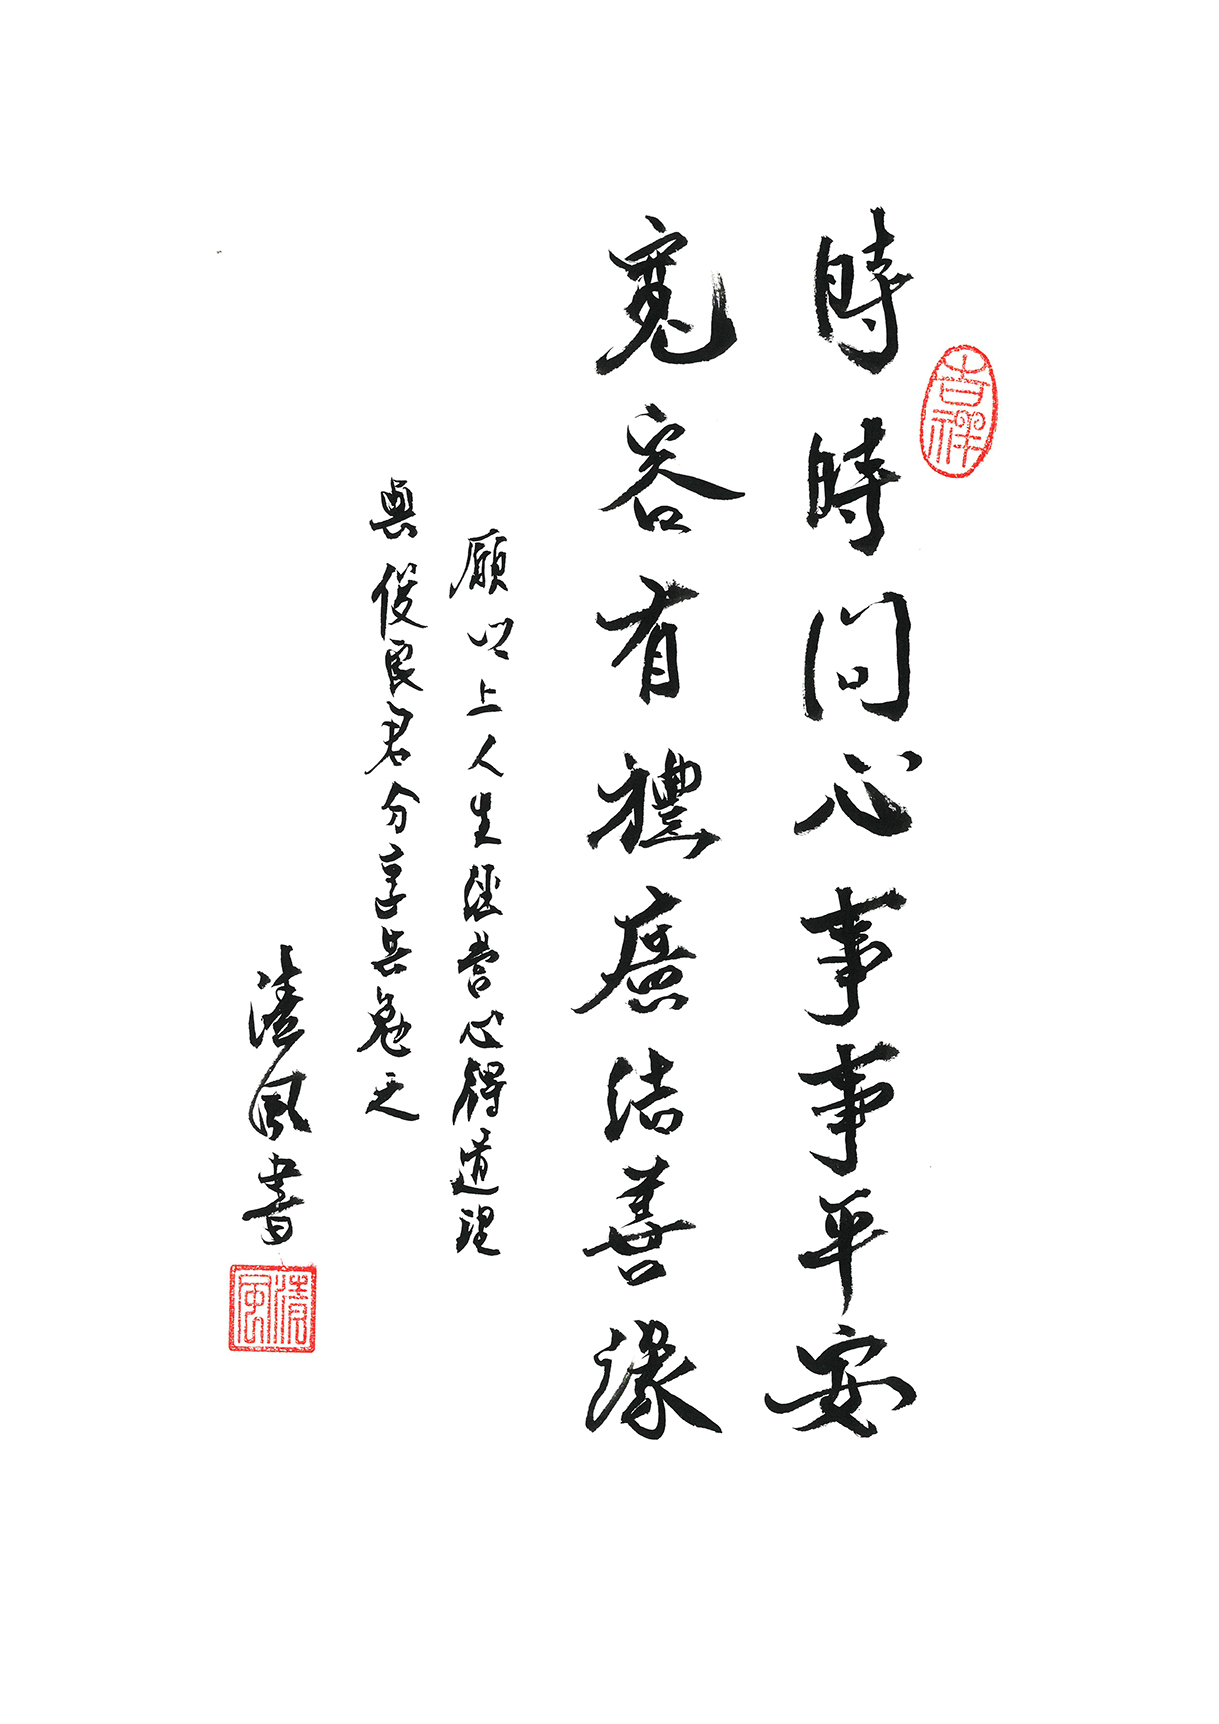 時時問心事事平安
吉祥
寬容有禮廣結善緣
願以上人生經營心得道理
與俊良君分享共勉之
清風書
清風